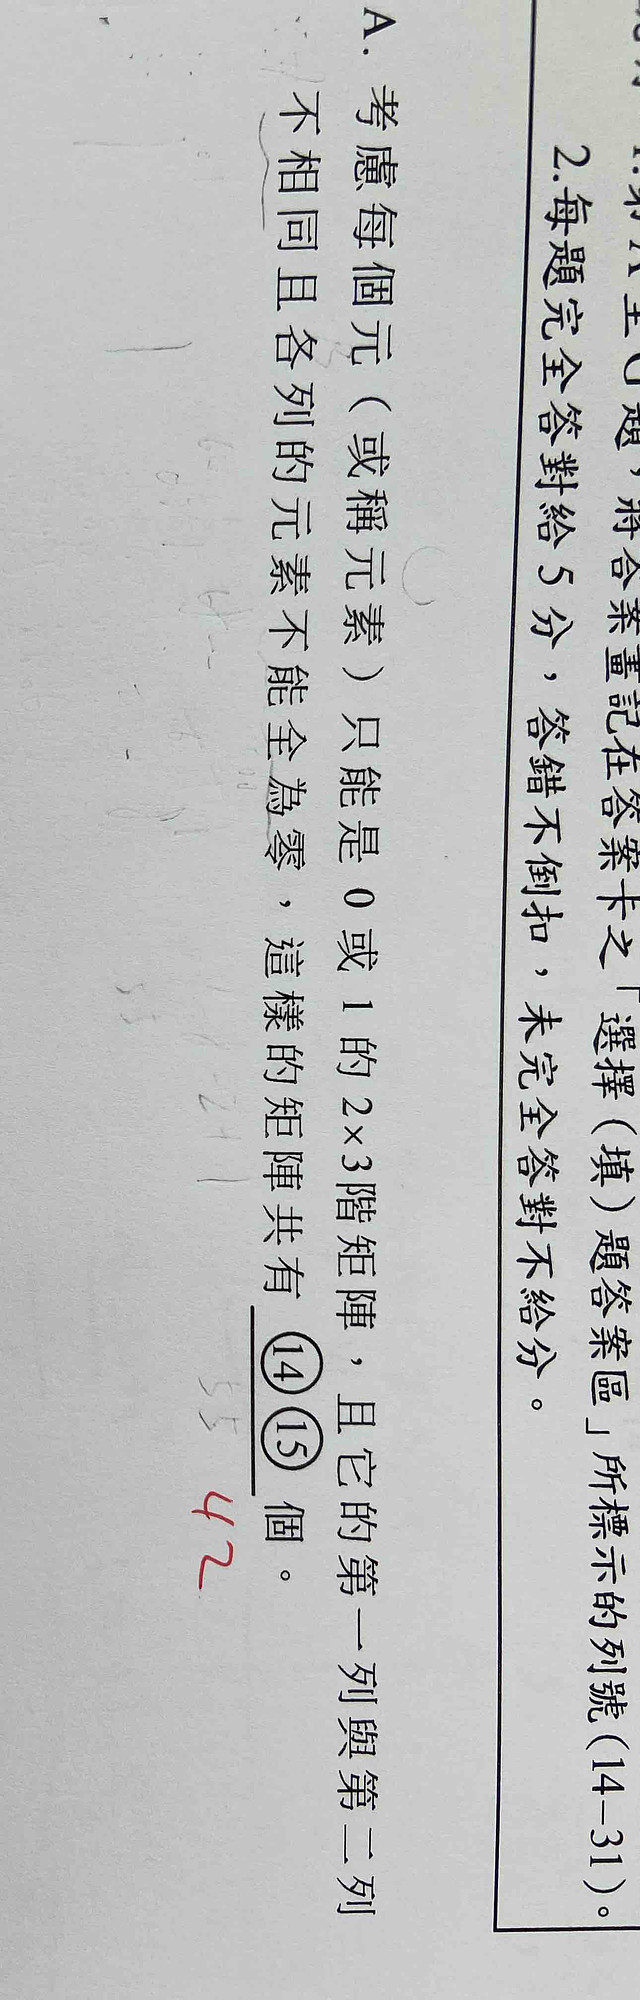 1.第A至
題，將答案畫記在答案卡之「選擇（填）題答案區」所標示的列號(14–31)。
2.每題完全答對給5分，答錯不倒扣，未完全答對不給分。
A. 考慮每個元（或稱元素）只能是0或1的2×3階矩陣，且它的第一列與第二列
不相同且各列的元素不能全為零，這樣的矩陣共有 ⑭⑮ 個。
42